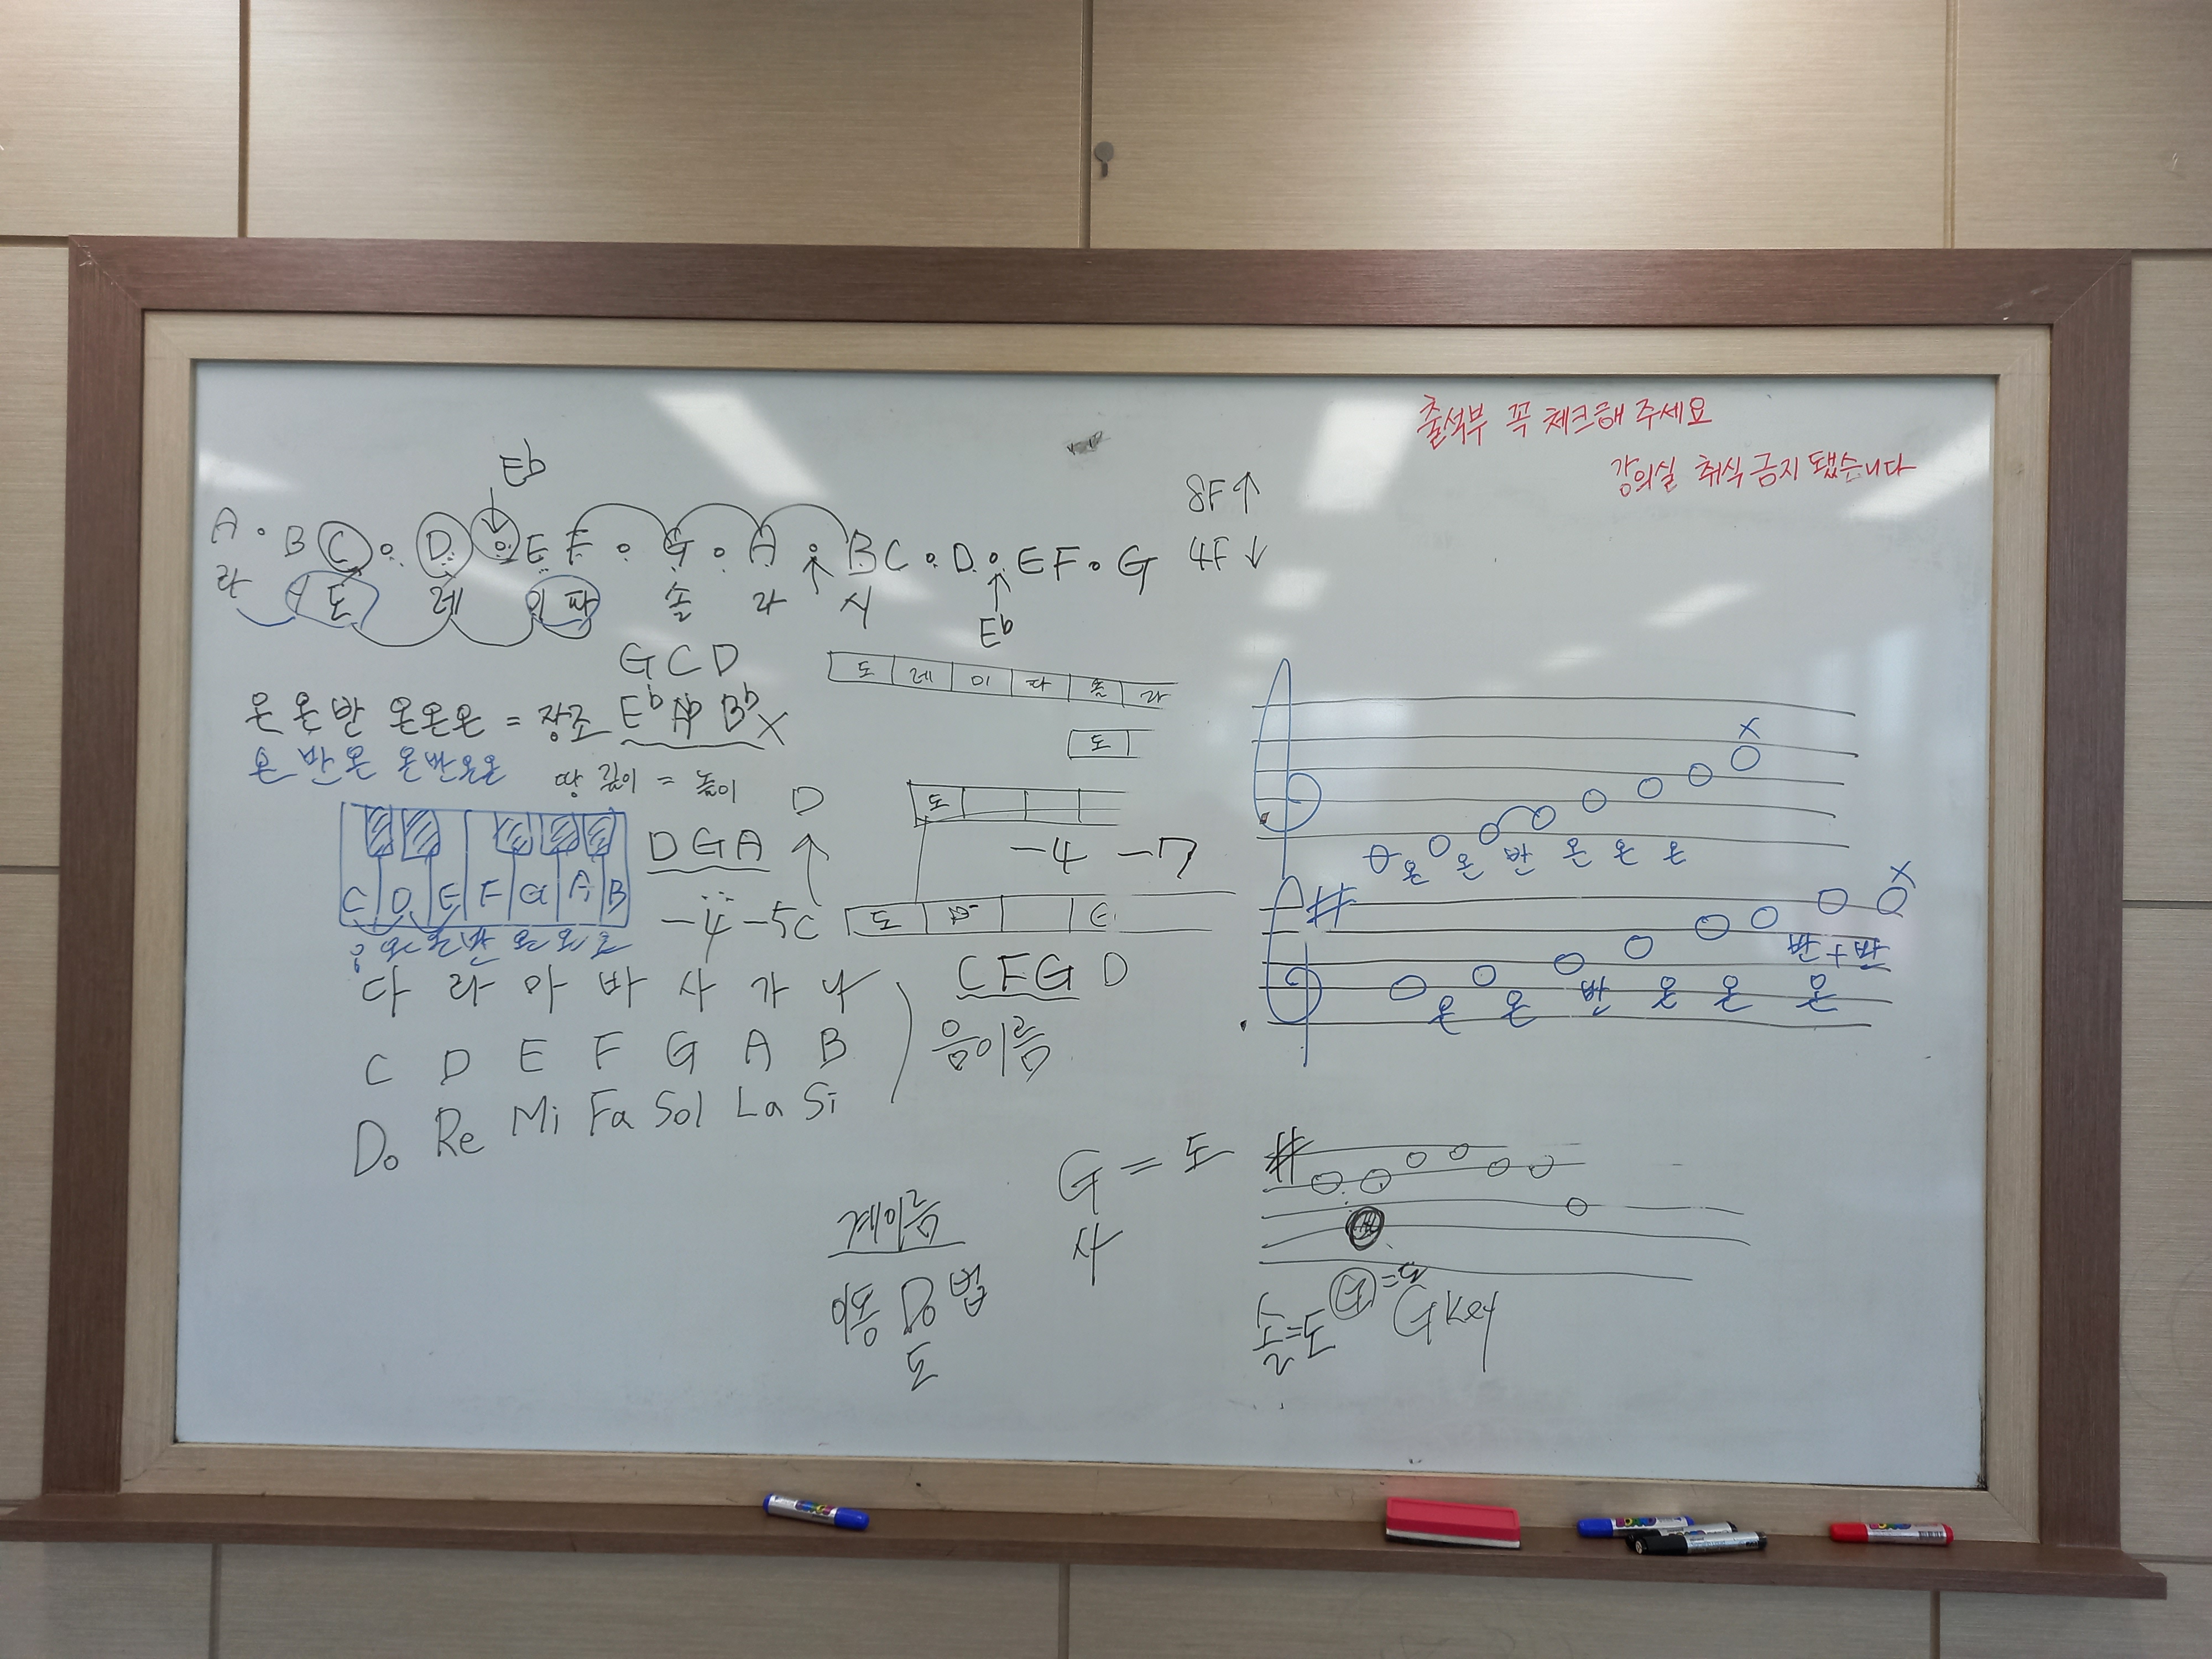 출석부 꼭 체크해 주세요
강의실 취식 금지 됐습니다
Eb
A B C D E F G A B C D E F G
8F↑
4F↓
라 시 도 레 미 파 솔 라 시
Eb
G C D
도 레 미 파 솔 라
온 온 반 온온온 = 장조 Eb Ab Bb X
온 반 온 온반온온
땅 깊이 = 높이
도
D
도
D G A
-4 -7
C D E F G A B
-4 -5 C
도
온 온 반 온 온 온
다 라 마 바 사 가 나
C F G D
C D E F G A B
음이름
Do Re Mi Fa Sol La Si
x
온 온 반 온 온 온
#
x
반+반
온 온 반 온 온 온
계이름
이동 Do 법
도
G = 도
사
#
솔=도
G=도
G Key